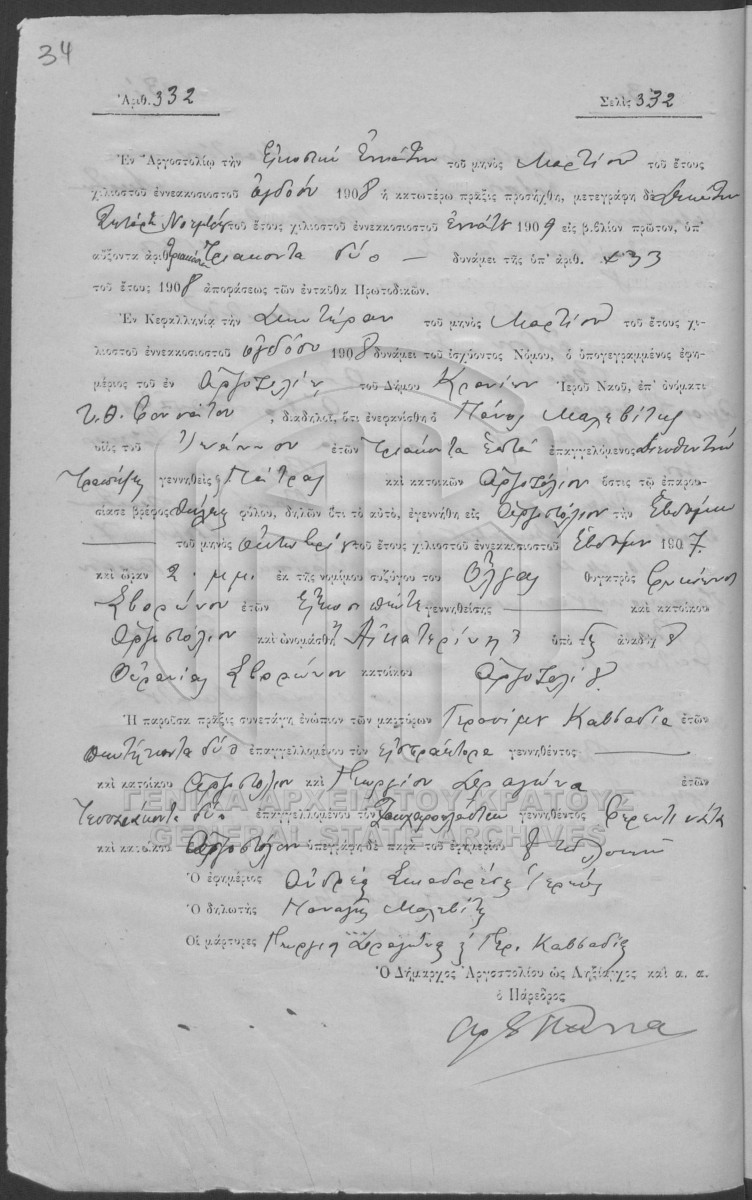 34
Ἀριθ. 332 Σελὶς 332
Ἐν Ἀργοστολίῳ τὴν Εἰκοστὴν Ἐννάτην τοῦ μηνὸς Μαρτίου τοῦ ἔτους
χιλιοστοῦ ἐννεακοσιοστοῦ ὀγδόου 1908 ἡ κατωτέρω πρᾶξις προσήχθη, μετεγράφη δὲ
τοῦ ἔτους χιλιοστοῦ ἐννεακοσιοστοῦ ἐννάτου 1909 εἰς βιβλίον πρῶτον, ὑπ'
αὔξοντα ἀριθ. Τριακόσια Τριάκοντα δύο — δυνάμει τῆς ὑπ' ἀριθ. 433
τοῦ ἔτους 1908 ἀποφάσεως τῶν ἐνταῦθα Πρωτοδικῶν.
Ἐν Κεφαλληνίᾳ τὴν Δευτέραν τοῦ μηνὸς Μαρτίου τοῦ ἔτους χι-
λιοστοῦ ἐννεακοσιοστοῦ ὀγδόου 1908 δυνάμει τοῦ ἰσχύοντος Νόμου, ὁ ὑπογεγραμμένος ἐφη-
μέριος τοῦ ἐν Ἀργοστολίῳ τοῦ Δήμου Κρανίων Ἱεροῦ Ναοῦ, ἐπ' ὀνόματι
διαδηλοῖ, ὅτι ἐνεφανίσθη ὁ Πάνος Μαλεβίτης
υἱὸς τοῦ Ἰωάννου ἐτῶν Τριάκοντα Ἑπτὰ ἐπαγγελλόμενος Διευθυντὴς
Τραπέζης γεννηθεὶς Πάτρας καὶ κατοικῶν Ἀργοστόλιον ὅστις τῷ ἐπαρου-
σίασε βρέφος θήλεος φύλου, δηλῶν ὅτι τὸ αὐτὸ, ἐγεννήθη εἰς Ἀργοστόλιον τὴν Ἑβδόμην
— τοῦ μηνὸς Ὀκτωβρίου τοῦ ἔτους χιλιοστοῦ ἐννεακοσιοστοῦ Ἑβδόμου 1907
καὶ ὥραν 2. μ.μ. ἐκ τῆς νομίμου συζύγου του Ὄλγας θυγατρὸς
Σβορώνου ἐτῶν Εἴκοσι πέντε γεννηθείσης — καὶ κατοίκου
Ἀργοστόλιον καὶ ὠνομάσθη Αἰκατερίνη ὑπὸ τῆς ἀναδόχου
Οὐρανίας Σβορώνου κατοίκου Ἀργοστολίου
Ἡ παροῦσα πρᾶξις συνετάγη ἐνώπιον τῶν μαρτύρων Γερασίμου Καββαδία ἐτῶν
πεντήκοντα δύο ἐπαγγελλομένου τὸν εἰσπράκτορα γεννηθέντος —
καὶ κατοίκου Ἀργοστόλιον καὶ Γεωργίου Δραγώνα ἐτῶν
Τεσσαράκοντα δύο ἐπαγγελλομένου τὸν Ζαχαροπλάστην γεννηθέντος Φερεντινάτα
καὶ κατοίκου Ἀργοστόλιον ὑπεγράφη δὲ παρὰ τοῦ ἐφημερίου
Ὁ ἐφημέριος Ἀνδρέας Σκιαδαρέσης Ἱερεύς
Ὁ δηλωτὴς Παναγῆς Μαλεβίτης
Οἱ μάρτυρες Γεώργιος Δραγώνας Γερ. Καββαδίας
Ὁ Δήμαρχος Ἀργοστολίου ὡς Ληξίαρχος καὶ α. α.
ὁ Πάρεδρος
ΓΕΝΙΚΑ ΑΡΧΕΙΑ ΤΟΥ ΚΡΑΤΟΥΣ
GENERAL STATE ARCHIVES